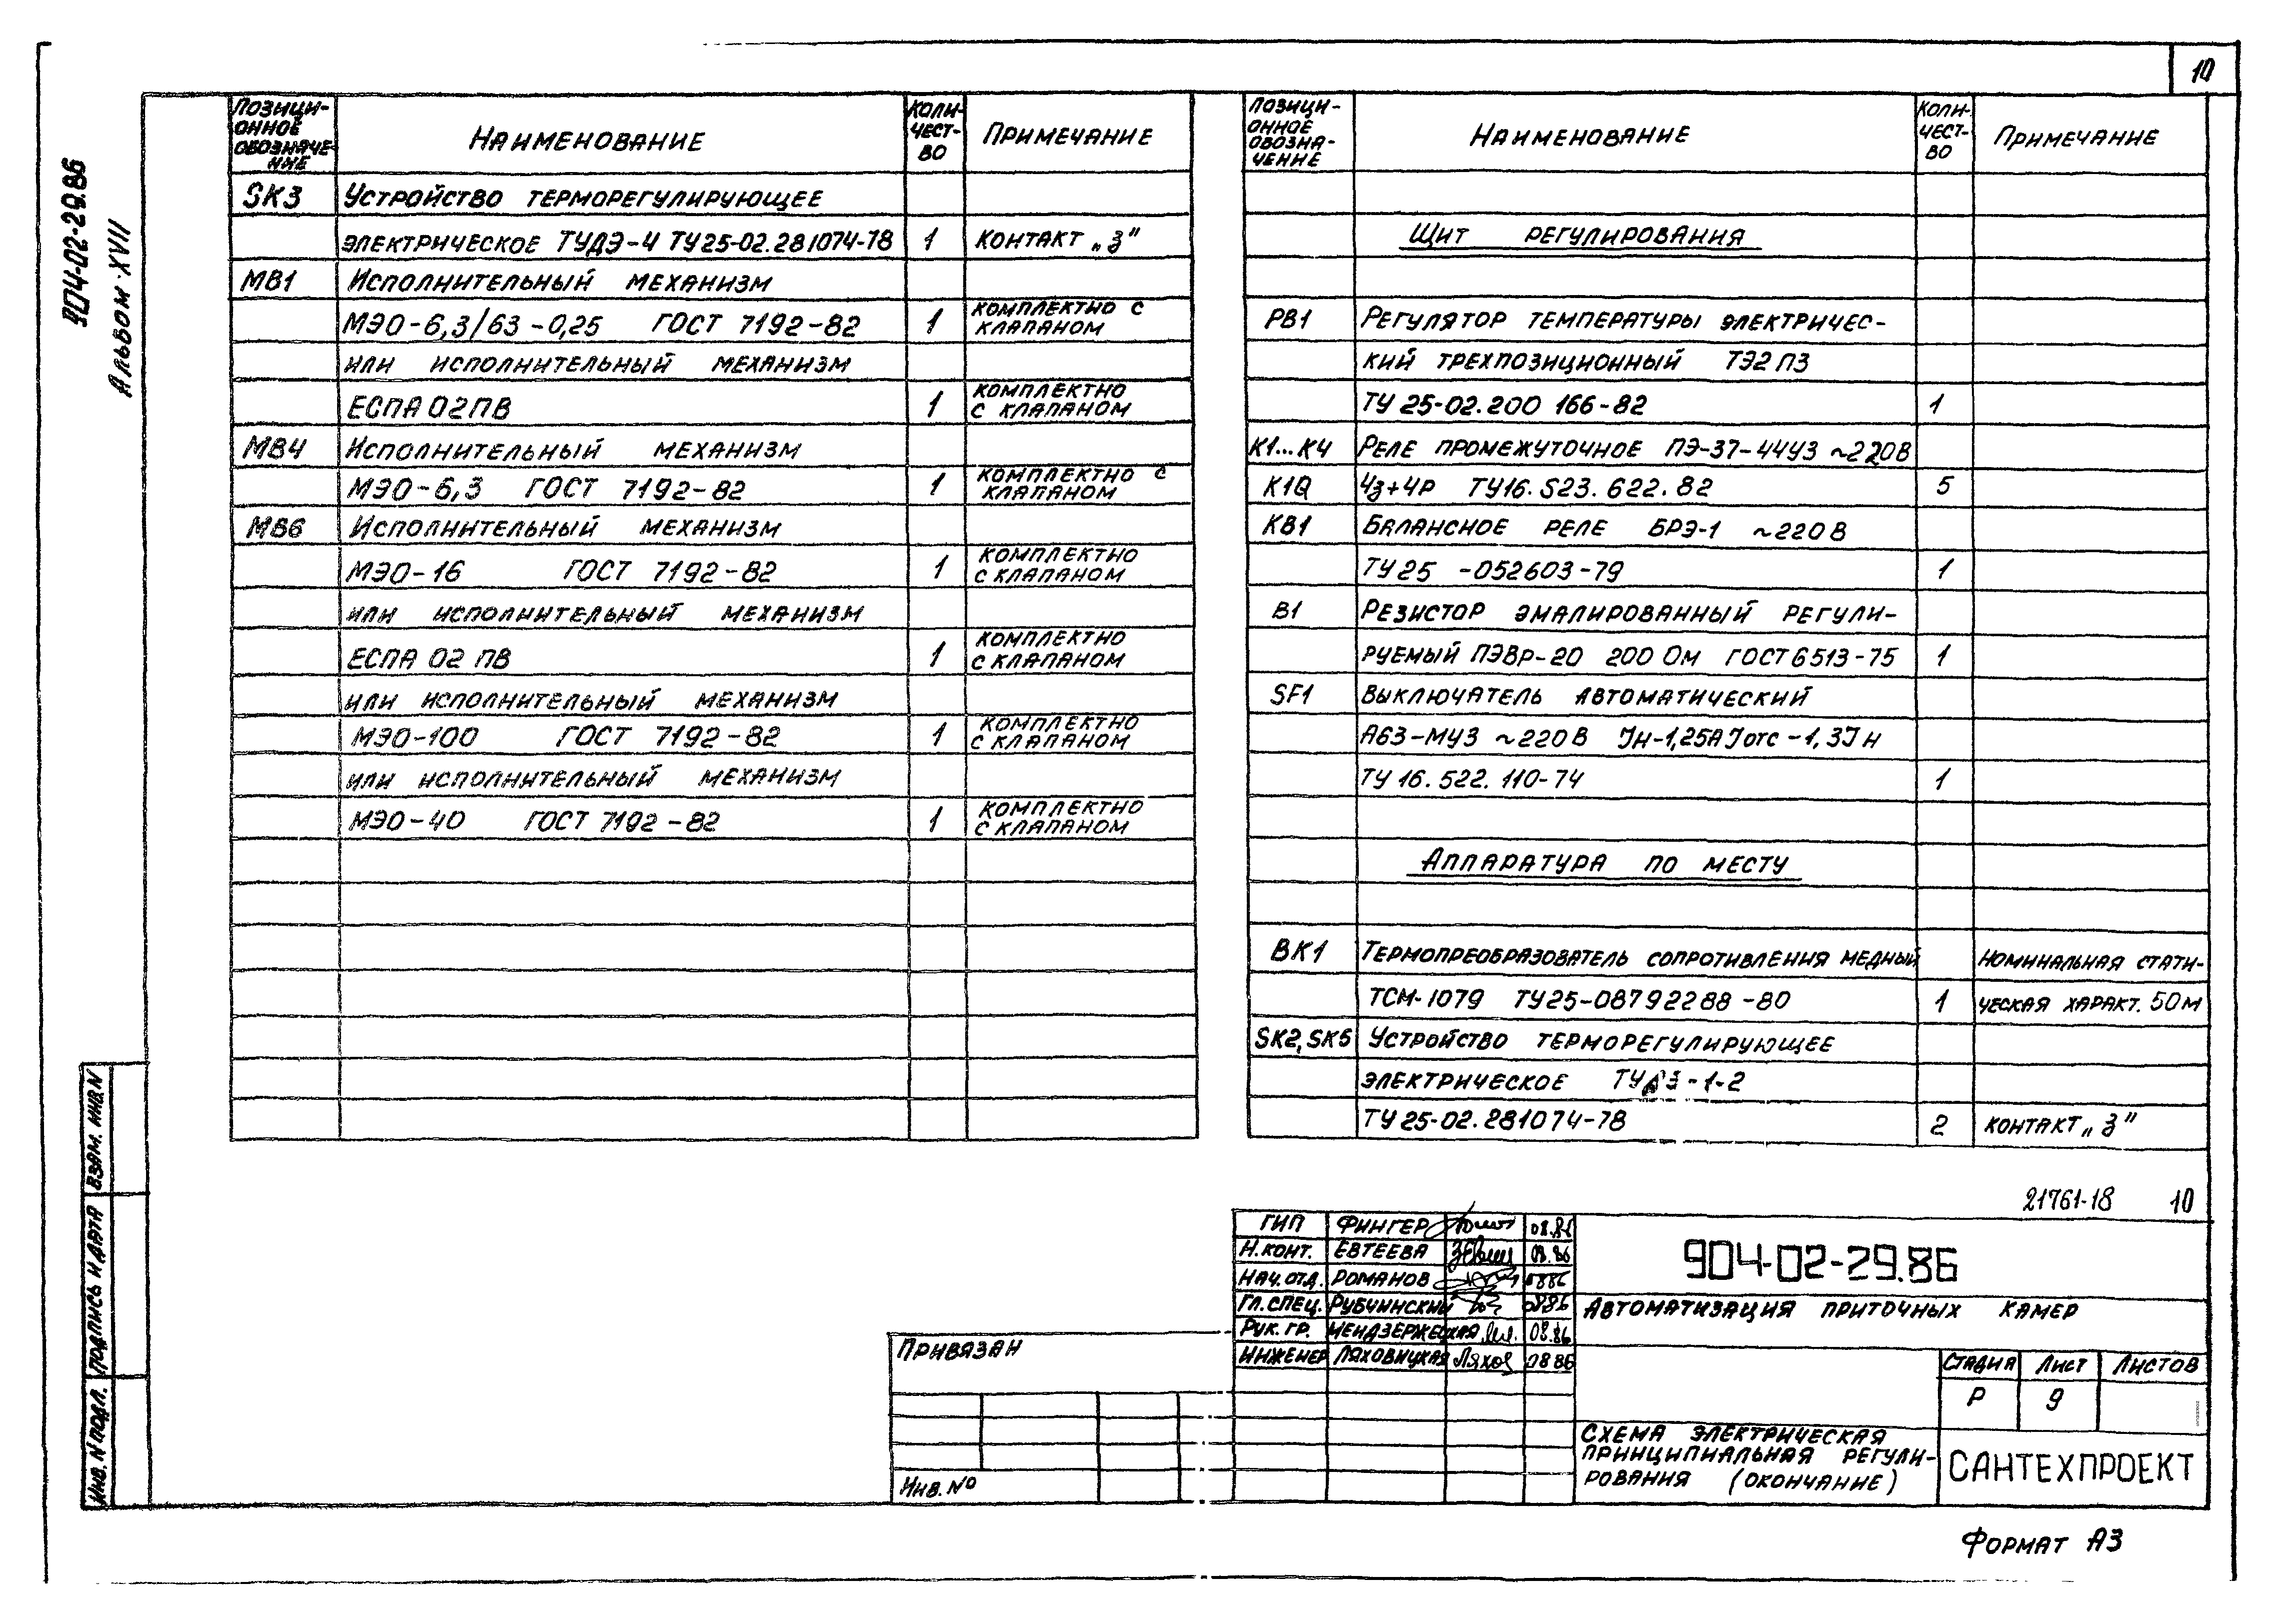 10
904-02-29.86
Альбом XVII
Позици-
онное
обозначе-
ние
Наименование
Коли-
чест-
во
Примечание
SK3 Устройство терморегулирующее
электрическое ТУДЭ-4 ТУ25-02.281074-78 1 контакт „з"
МВ1 Исполнительный механизм
МЭО-6,3/63-0,25 ГОСТ 7192-82 1 комплектно с
клапаном
или исполнительный механизм
ЕСПА 02ПВ 1 комплектно
с клапаном
МВ4 Исполнительный механизм
МЭО-6,3 ГОСТ 7192-82 1 комплектно с
клапаном
МВ6 Исполнительный механизм
МЭО-16 ГОСТ 7192-82 1 комплектно
с клапаном
или исполнительный механизм
ЕСПА 02 ПВ 1 комплектно
с клапаном
или исполнительный механизм
МЭО-100 ГОСТ 7192-82 1 комплектно
с клапаном
или исполнительный механизм
МЭО-40 ГОСТ 7192-82 1 комплектно
с клапаном
Позици-
онное
обозна-
чение
Наименование
Коли-
чест-
во
Примечание
Щит регулирования
РВ1 Регулятор температуры электричес-
кий трехпозиционный ТЭ2П3
ТУ 25-02.200 166-82 1
К1...К4 Реле промежуточное ПЭ-37-44У3 ~220В
К1Q 4з+4р ТУ16.523.622.82 5
КВ1 Балансное реле БРЭ-1 ~220В
ТУ25-052603-79 1
В1 Резистор эмалированный регули-
руемый ПЭВР-20 200 Ом ГОСТ 6513-75 1
SF1 Выключатель автоматический
А63-МУ3 ~220В Iн-1,25А Iотс-1,3Iн
ТУ 16.522.110-74 1
Аппаратура по месту
ВК1 Термопреобразователь сопротивления медный Номинальная стати-
ТСМ-1079 ТУ25-08792288-80 1 ческая характ. 50м
SK2, SK5 Устройство терморегулирующее
электрическое ТУДЭ-1-2
ТУ 25-02.281074-78 2 контакт „з"
21761-18 10
ГИП Фингер 08.86
Н.конт. Евтеева 08.86
Нач.отд. Романов 0886
Гл.спец. Рубчинский 0886
Рук.гр. Мендзержецкая 08.86
Инженер Ляховицкая Ляхов 0886
904-02-29.86
Автоматизация приточных камер
Стадия Лист Листов
Р 9
Схема электрическая
принципиальная регули-
рования (окончание)
САНТЕХПРОЕКТ
Привязан
Инв. №
Инв. N подл. Подпись и дата Взам. инв N
Формат А3